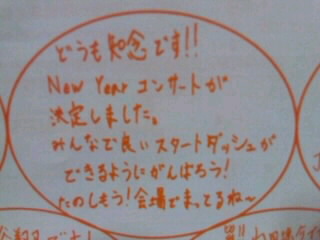 どうも知念です!!
New Year コンサートが
決定しました。
みんなで良いスタートダッシュが
できるようにがんばろう!
たのしもう!会場でまってるね〜